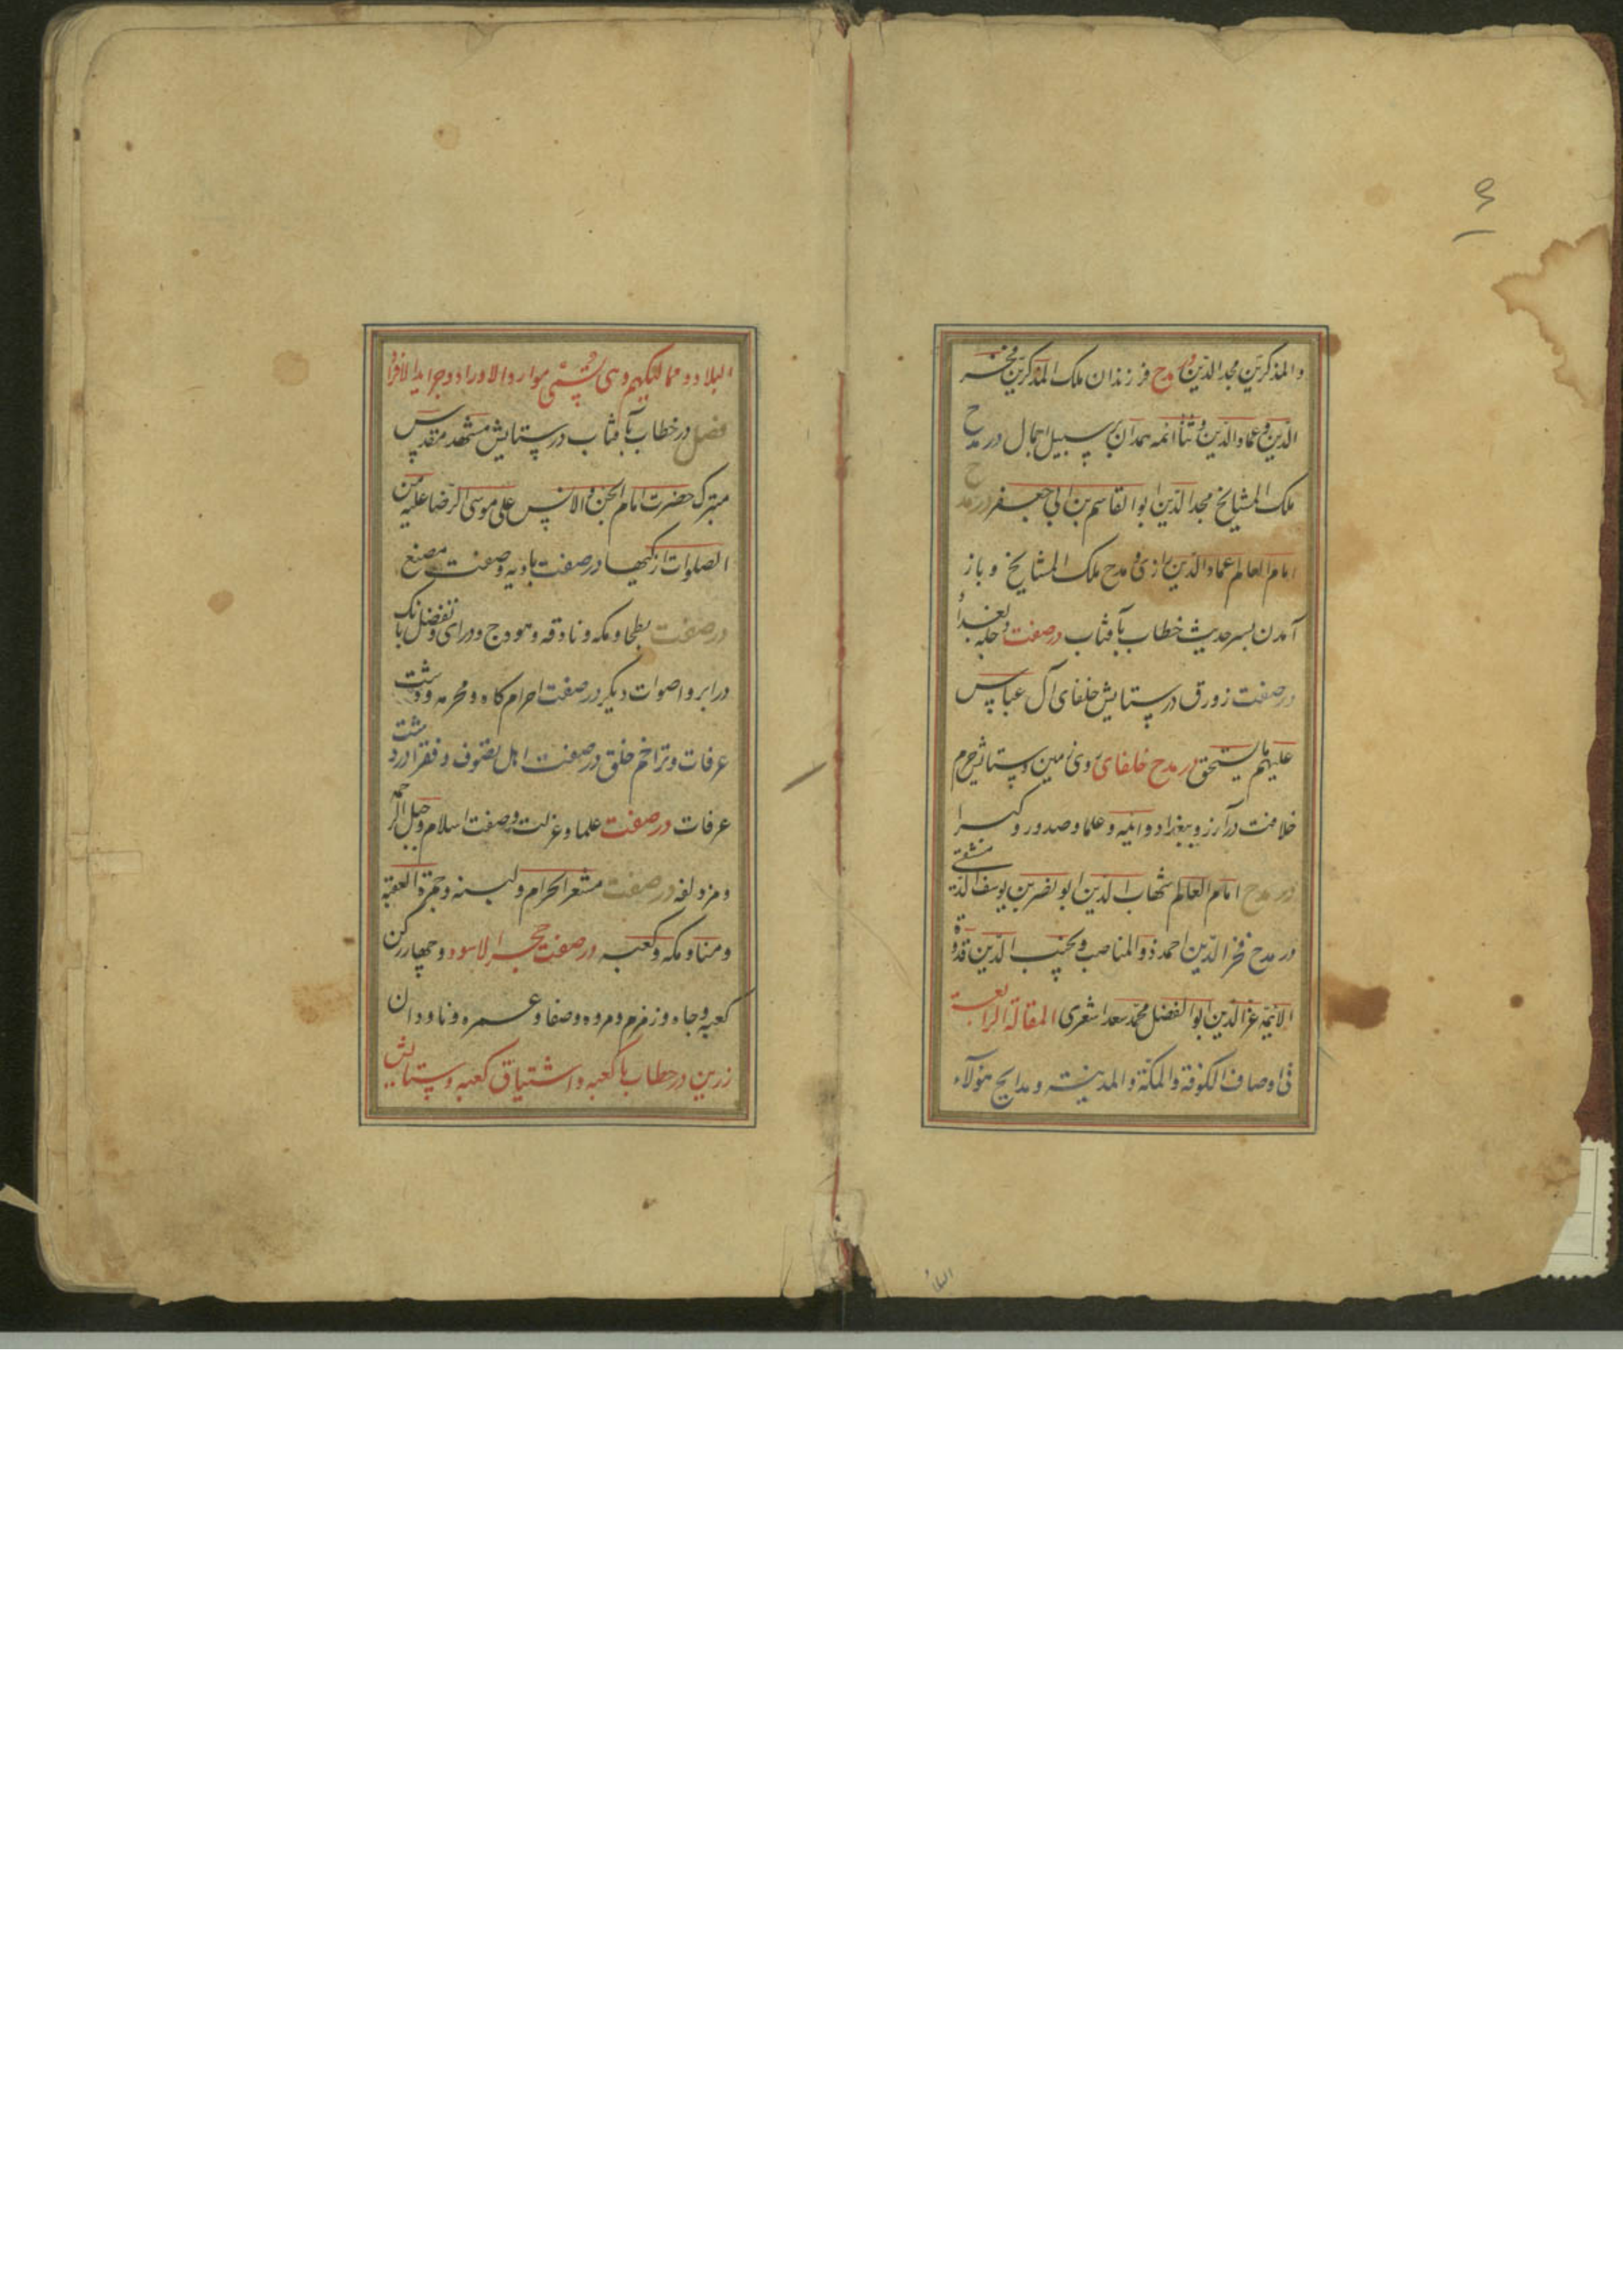 ۶
والمذکرین مجد الدین در مدح فرزندان ملک المذکرین فخر
الدین و عماد الدین و ثنا ائمه همدان بر سبیل اجمال در مدح
ملک المشایخ مجد الدین ابو القاسم بن ابی جعفر در مدح
امام العالم عماد الدین رازی و مدح ملک المشایخ و باز
آمدن بسر حدیث خطاب بآفتاب در صفت دجله و بغداد
در صفت زورق در ستایش خلفای آل عباس
علیهم ما یستحق در مدح خلفای روی زمین و ستایش حرم
خلافت در آرزو ببغداد و ابنیه و علما و صدور و کبرا
در مدح امام العالم شهاب الدین ابو نصر بن یوسف الدمشقی
در مدح فخر الدین احمد ذو المناصب و نجیب الدین قدوة
الائمة عز الدین ابو الفضل محمد سعد اشعری المقالة الرابعة
فی اوصاف الکوفة والمکة والمدینة و مدایح هؤلاء
البلاد
البلاد و ممالیکهم و هی تسمی موارد الاوراد و جراید الافراد
فصل در خطاب بآفتاب در ستایش مشهد مقدس
متبرک حضرت امام الجن والانس علی موسی الرضا علیه من
الصلوات ازکیها در صفت بادیه و صفت مصنع
در صفت بطحا و مکه و ناقه و هودج و درای و تفضل بانک
درا بر اصوات دیگر در صفت احرام کاه و محرمه و دشت
عرفات و تزاحم خلق در صفت اهل تصوف و فقرا در دشت
عرفات در صفت علما و عزلت و صفت اسلام و جبل الرحمه
و مزدلفه در صفت مشعر الحرام و لبسنه و جمرة العقبة
و منا و مکه و کعبه در صفت حجر الاسود و چهار رکن
کعبه و چاه و زمزم و مروه و صفا و عمره و ناودان
زرین در خطاب با کعبه و اشتیاق کعبه و ستایش